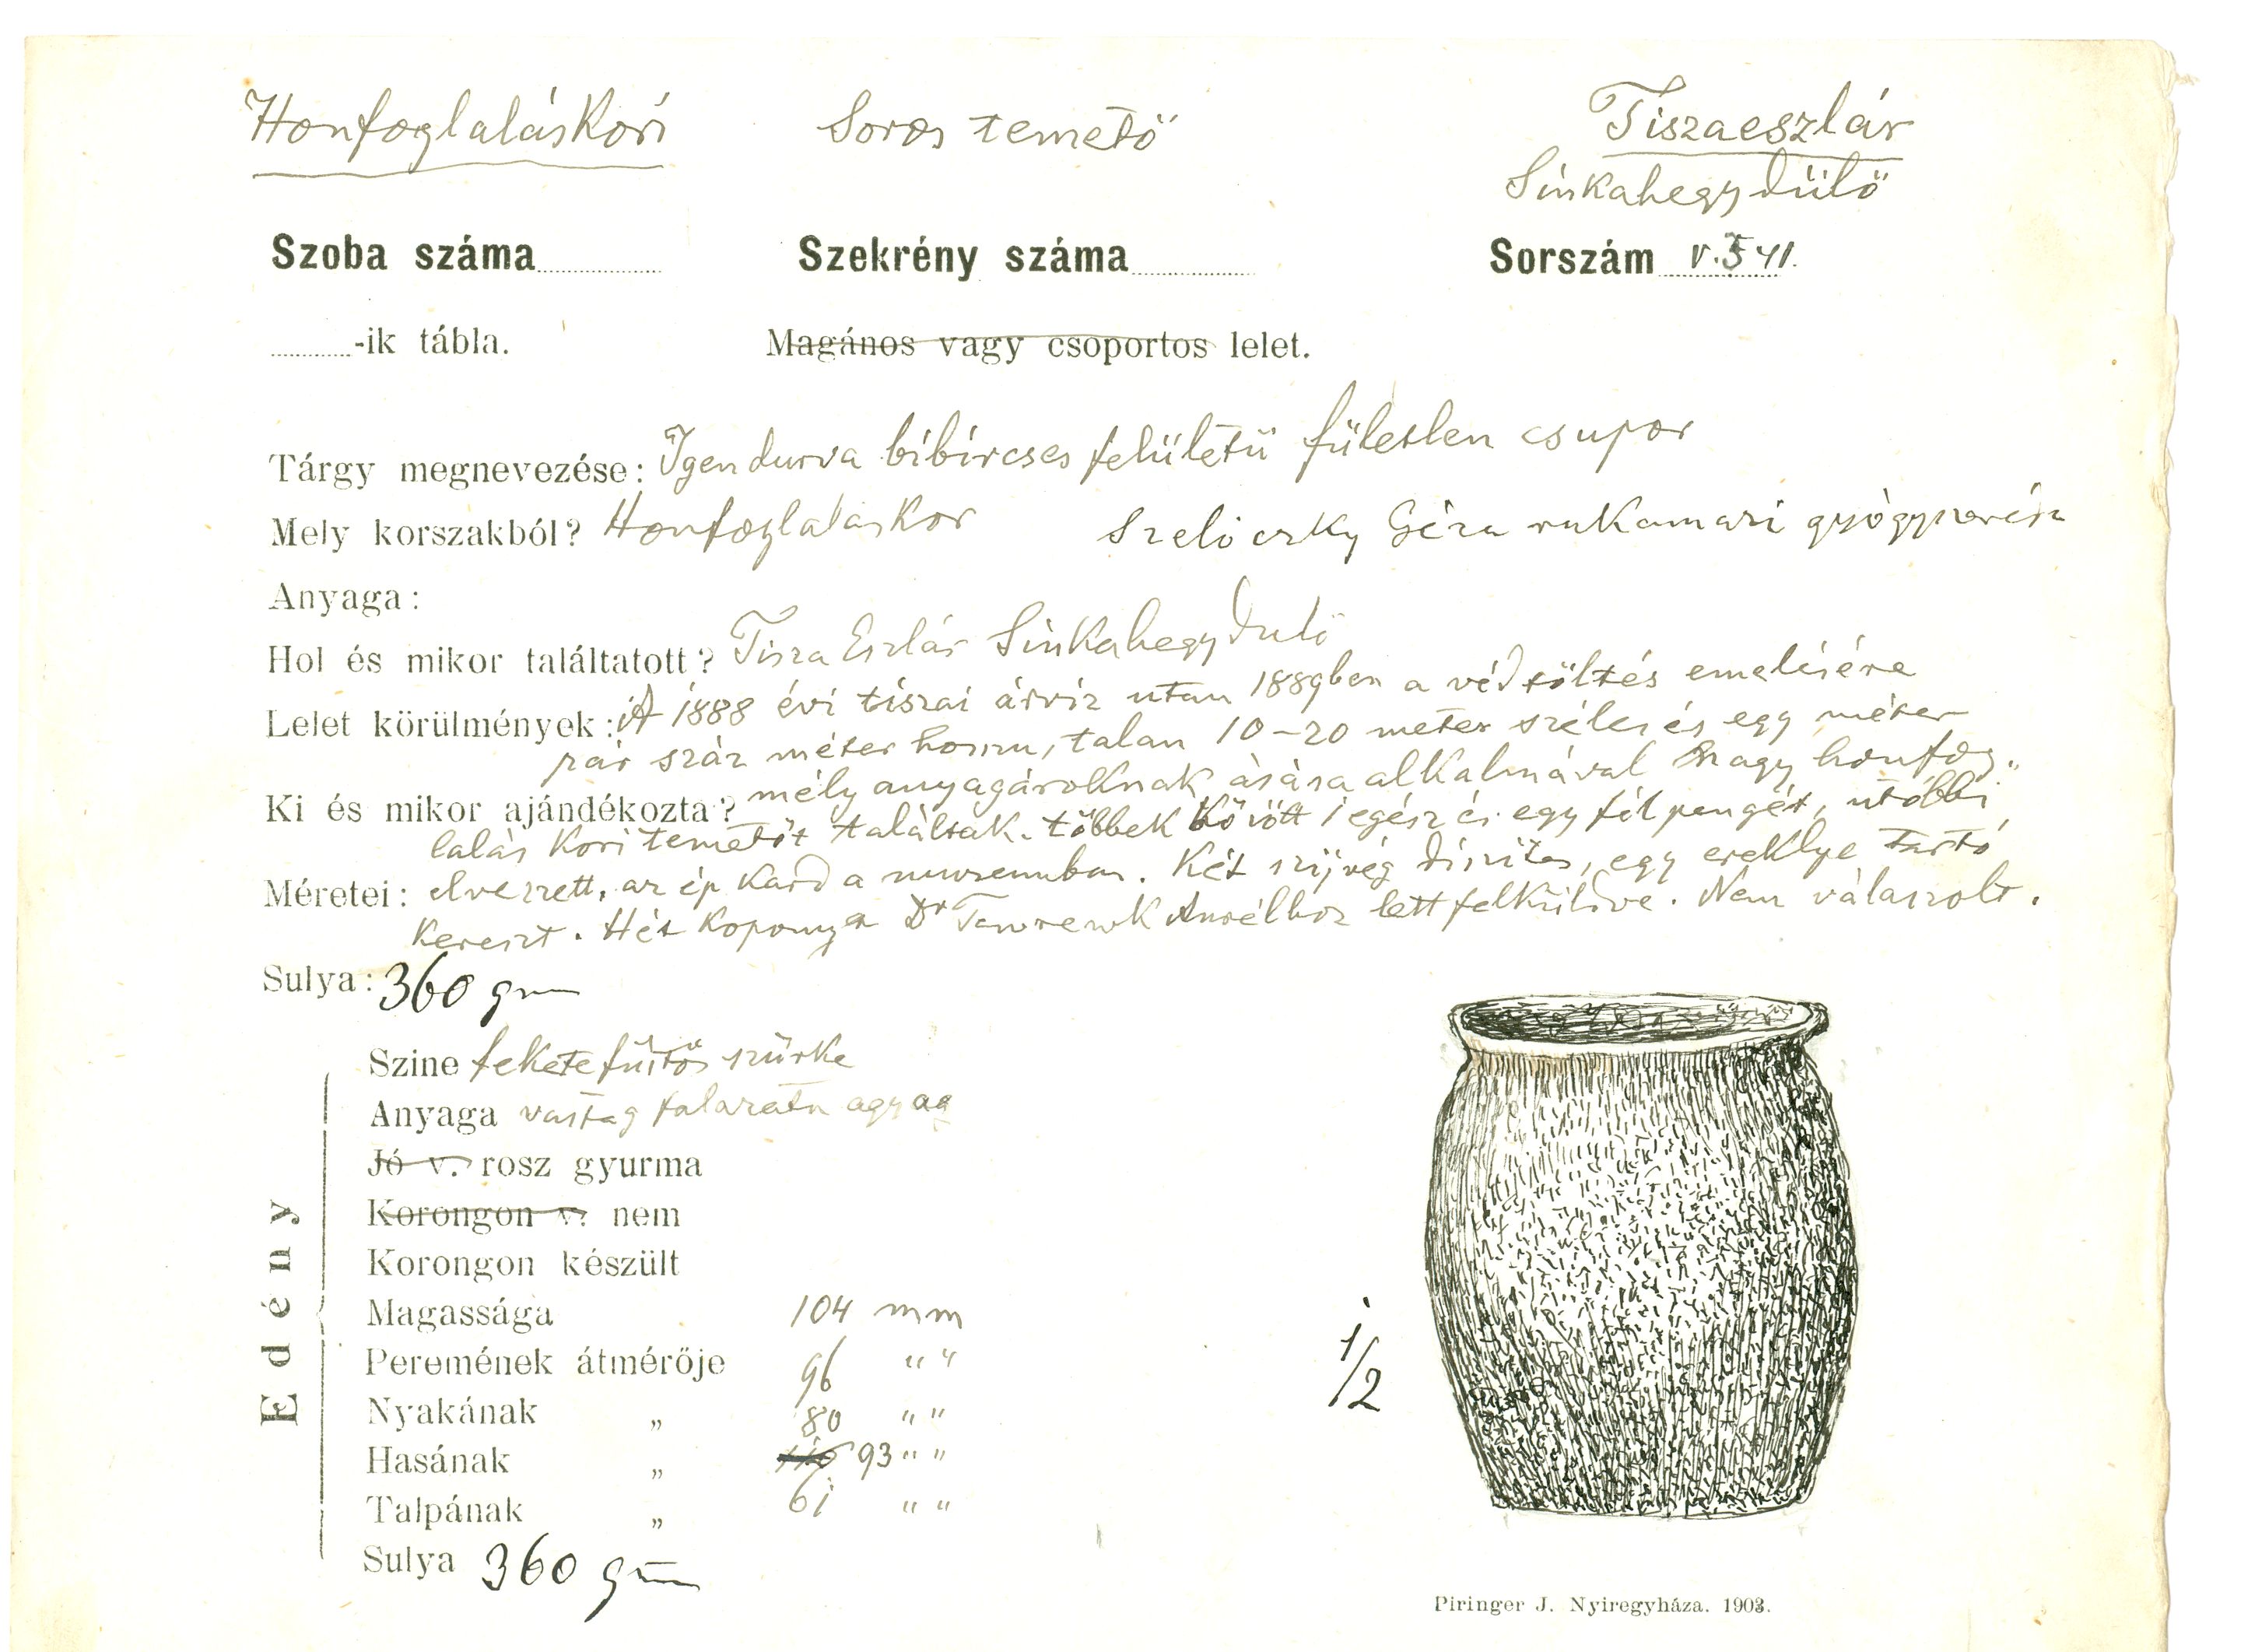 Honfoglaláskori Soros temető Tiszaeszlár
Sinkahegy dülő
Szoba száma Szekrény száma Sorszám V. 541.
-ik tábla. Magános vagy csoportos lelet.
Tárgy megnevezése: Igen durva bibircses felületü fületlen csupor
Mely korszakból? Honfoglaláskor Géza rakamazi gyógyszerész
Anyaga:
Hol és mikor találtatott? Tisza Eszlár Sinkahegy dulő
Lelet körülmények: A 1888 évi tiszai árviz utan 1889ben a védtöltés emelésére
pár száz méter hosszu, talan 10-20 meter széles és egy méter
Ki és mikor ajándékozta? mély anyagároknak ásása alkalmával nagy honfog„
lalás kori temetőt találtak. többek között 1 egész és egy fél pengét, utóbbi
Méretei: elveszett, az ép kard a muzeumban. Két szijvég diszites, egy ereklye tartó
kereszt. Hét koponya Dr Aurélhoz lett felküldve. Nem válaszolt.
Sulya: 360 gm
Edény
Szine fekete füstös szürke
Anyaga vastag falazatu agyag
Jó v. rosz gyurma
Korongon v. nem
Korongon készült
Magassága 104 mm
Peremének átmérője 96 " "
Nyakának „ 80 " "
Hasának „ 110 93 " "
Talpának „ 61 " "
Sulya 360 gm
1/2
Piringer J. Nyiregyháza. 1903.